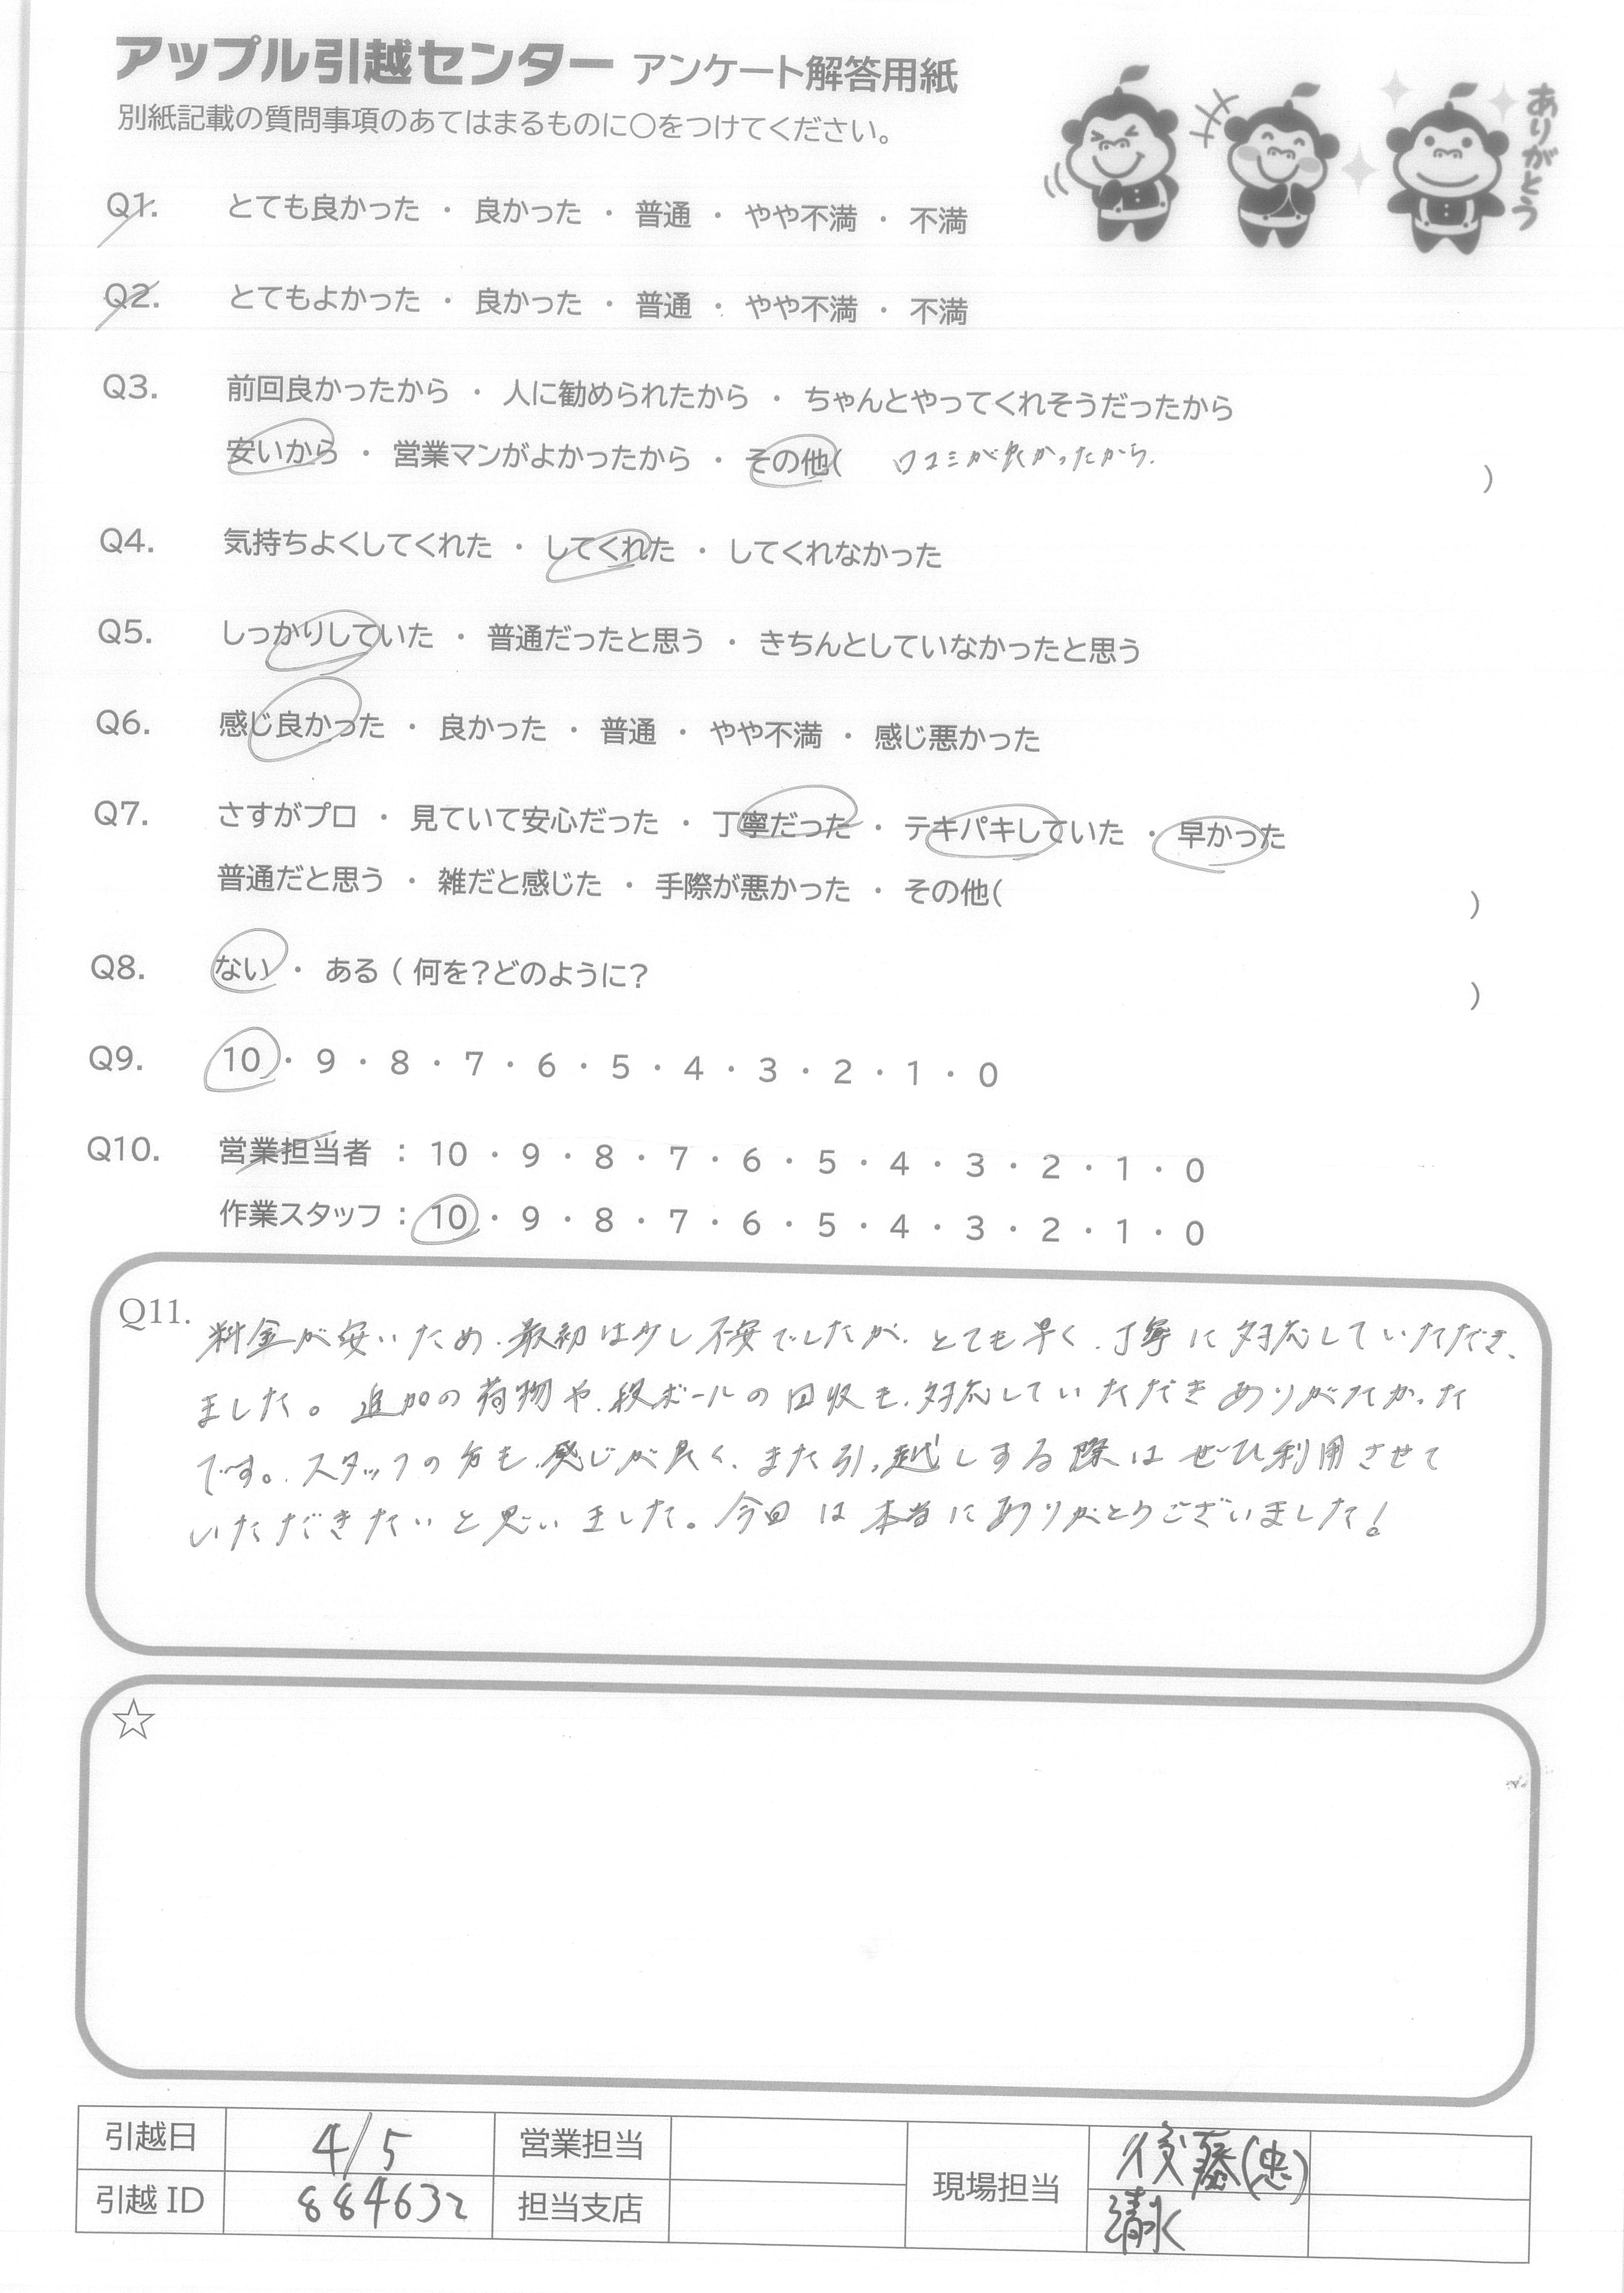 アップル引越センター アンケート解答用紙
別紙記載の質問事項のあてはまるものに○をつけてください。
ありがとう
Q1. とても良かった ・ 良かった ・ 普通 ・ やや不満 ・ 不満
Q2. とてもよかった ・ 良かった ・ 普通 ・ やや不満 ・ 不満
Q3. 前回良かったから ・ 人に勧められたから ・ ちゃんとやってくれそうだったから
安いから ・ 営業マンがよかったから ・ その他( 口コミが良かったから. )
Q4. 気持ちよくしてくれた ・ してくれた ・ してくれなかった
Q5. しっかりしていた ・ 普通だったと思う ・ きちんとしていなかったと思う
Q6. 感じ良かった ・ 良かった ・ 普通 ・ やや不満 ・ 感じ悪かった
Q7. さすがプロ ・ 見ていて安心だった ・ 丁寧だった ・ テキパキしていた ・ 早かった
普通だと思う ・ 雑だと感じた ・ 手際が悪かった ・ その他( )
Q8. ない ・ ある ( 何を?どのように? )
Q9. 10 ・ 9 ・ 8 ・ 7 ・ 6 ・ 5 ・ 4 ・ 3 ・ 2 ・ 1 ・ 0
Q10. 営業担当者 : 10 ・ 9 ・ 8 ・ 7 ・ 6 ・ 5 ・ 4 ・ 3 ・ 2 ・ 1 ・ 0
作業スタッフ : 10 ・ 9 ・ 8 ・ 7 ・ 6 ・ 5 ・ 4 ・ 3 ・ 2 ・ 1 ・ 0
Q11. 料金が安いため、最初は少し不安でしたが、とても早く、丁寧に対応していただき、
ました。追加の荷物や、段ボールの回収も、対応していただきありがたかった
です。スタッフの方も感じが良く、また引っ越しする際はぜひ利用させて
いただきたいと思いました。今回は本当にありがとうございました!
☆
引越日 4/5 営業担当 現場担当 後藤(忠)
引越 ID 884632 担当支店 清水